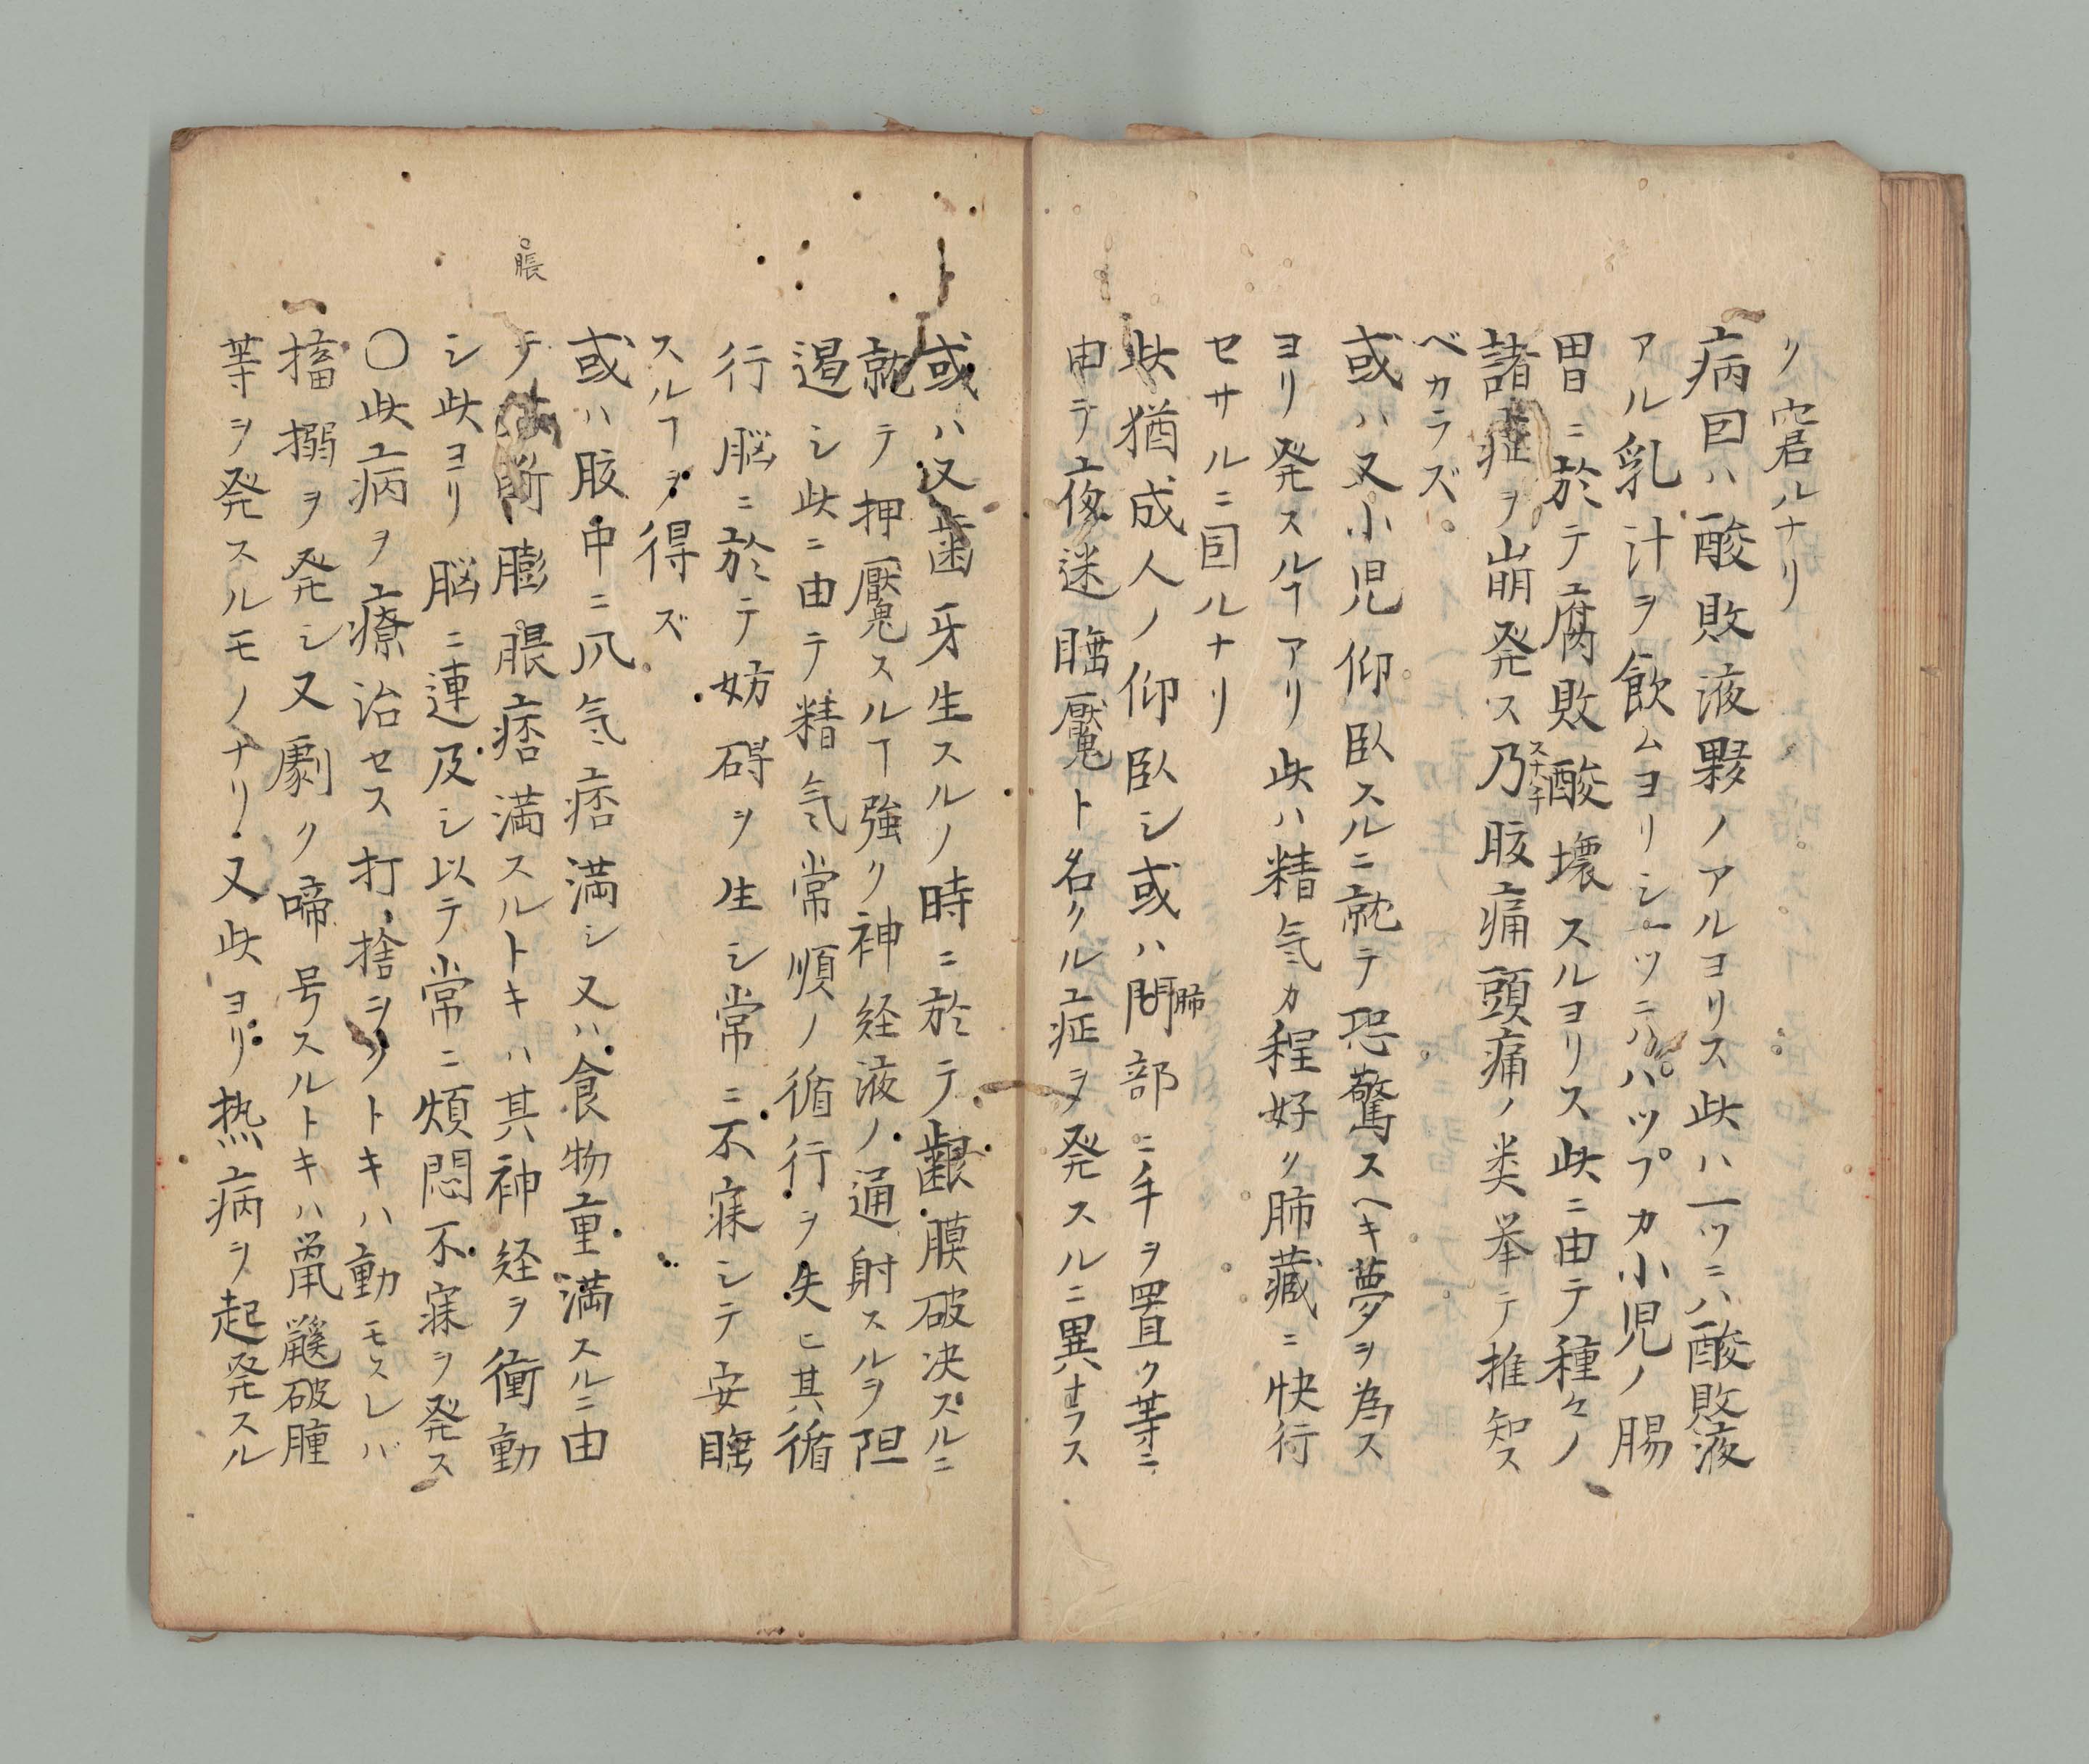 リ窘ルナリ
病因ハ酸敗液夥ノアルヨリス此ハ一ツニハ酸敗液
アル乳汁ヲ飲ムヨリシ一ツニハハツプカ小児ノ腸
胃ニ於テ腐敗酸壊スルヨリス此ニ由テ種々ノ
諸症ヲ崩発ス乃胘痛頭痛ノ类举テ推知ス
スナハチ
ベカラズ。
或ハ又小児仰臥スルニ就テ恐驚スヘキ夢ヲ為ス
ヨリ発スルヿアリ此ハ精気カ程好ク肺蔵ニ快行
セサルニ囙ルナリ
此猶成人ノ仰臥シ或ハ間部ニ手ヲ置ク等ニ
肺
由テ夜迷睡魘ト名クル症ヲ発スルニ異ナラス
或ハ又歯牙生スルノ時ニ於テ齦膜破决スルニ
就テ押魘スルヿ強ク神経液ノ通射スルヲ阻
遏シ此ニ由テ精気常順ノ循行ヲ失ヒ其循
行脳ニ於テ妨碍ヲ生シ常ニ不寐シテ安睡
スルヿヲ得ズ
或ハ胘中ニ爪気痞満シ又ハ食物重満スルニ由
テ断膨脹痞満スルトキハ其神経ヲ衝動
脹
シ此ヨリ脳ニ連及シ以テ常ニ煩悶不寐ヲ発ス
〇此病ヲ療治セス打捨ヲクトキハ動モスレバ
搐搦ヲ発シ又劇ク啼号スルトキハ鼠鼷破腫
等ヲ発スルモノナリ又此ヨリ热病ヲ起発スル